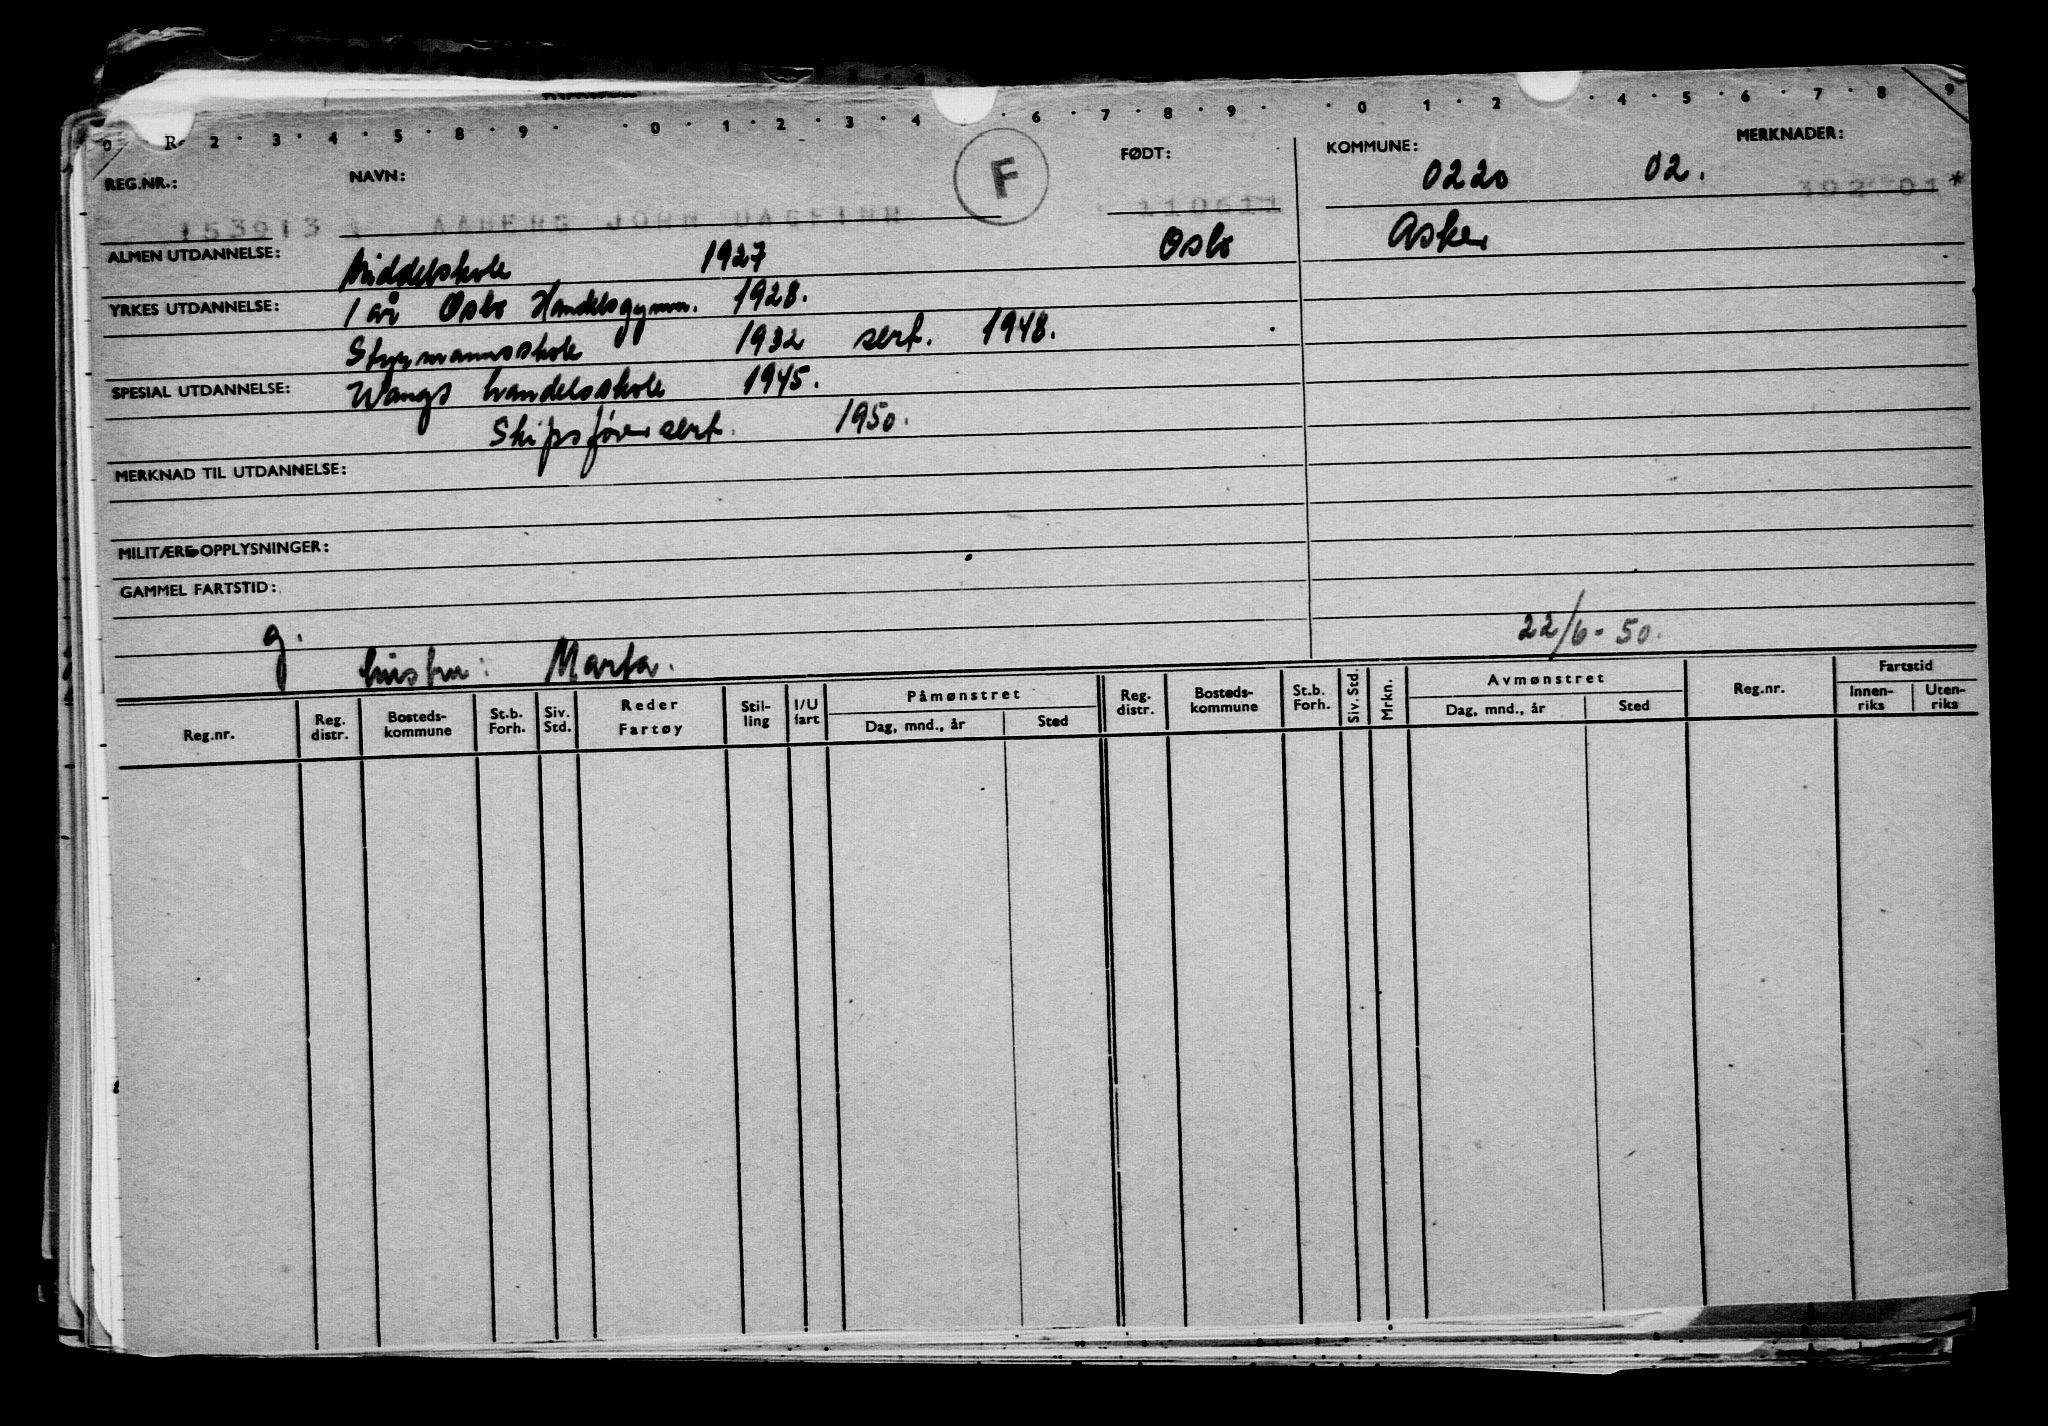 0 R. 2 · 3 · 4 · 5 · 8 · 9 · · 0 · 1 · 2 · 3 · 4 · 6 · 7 · 8 · 9 · · 0 · 1 · 2 · 4 · 5 · 6 · 7 · 8 · 9
REG.NR.: NAVN: F FØDT: KOMMUNE: 0220 02. MERKNADER:
AABERG JOHN DAGFINN 110611 *
ALMEN UTDANNELSE: Middelskole 1927 Oslo Asker
YRKES UTDANNELSE: 1 år Oslo Handelsgymn. 1928.
Styrmannsskole 1932 sert. 1948.
SPESIAL UTDANNELSE: Wangs handelsskole 1945.
Skipsfører sert. 1950.
MERKNAD TIL UTDANNELSE:
MILITÆRE OPPLYSNINGER:
GAMMEL FARTSTID:
g. 22/6-50.
hustru: Marta.
Reg.nr. Reg. distr. Bosteds-kommune St.b. Forh. Siv. Std. Reder Fartøy Stil-ling I/U fart Påmønstret Dag, mnd., år Sted Reg. distr. Bosteds-kommune St.b. Forh. Siv. Std. Mrkn. Avmønstret Dag, mnd., år Sted Reg.nr. Fartstid Innen-riks Uten-riks